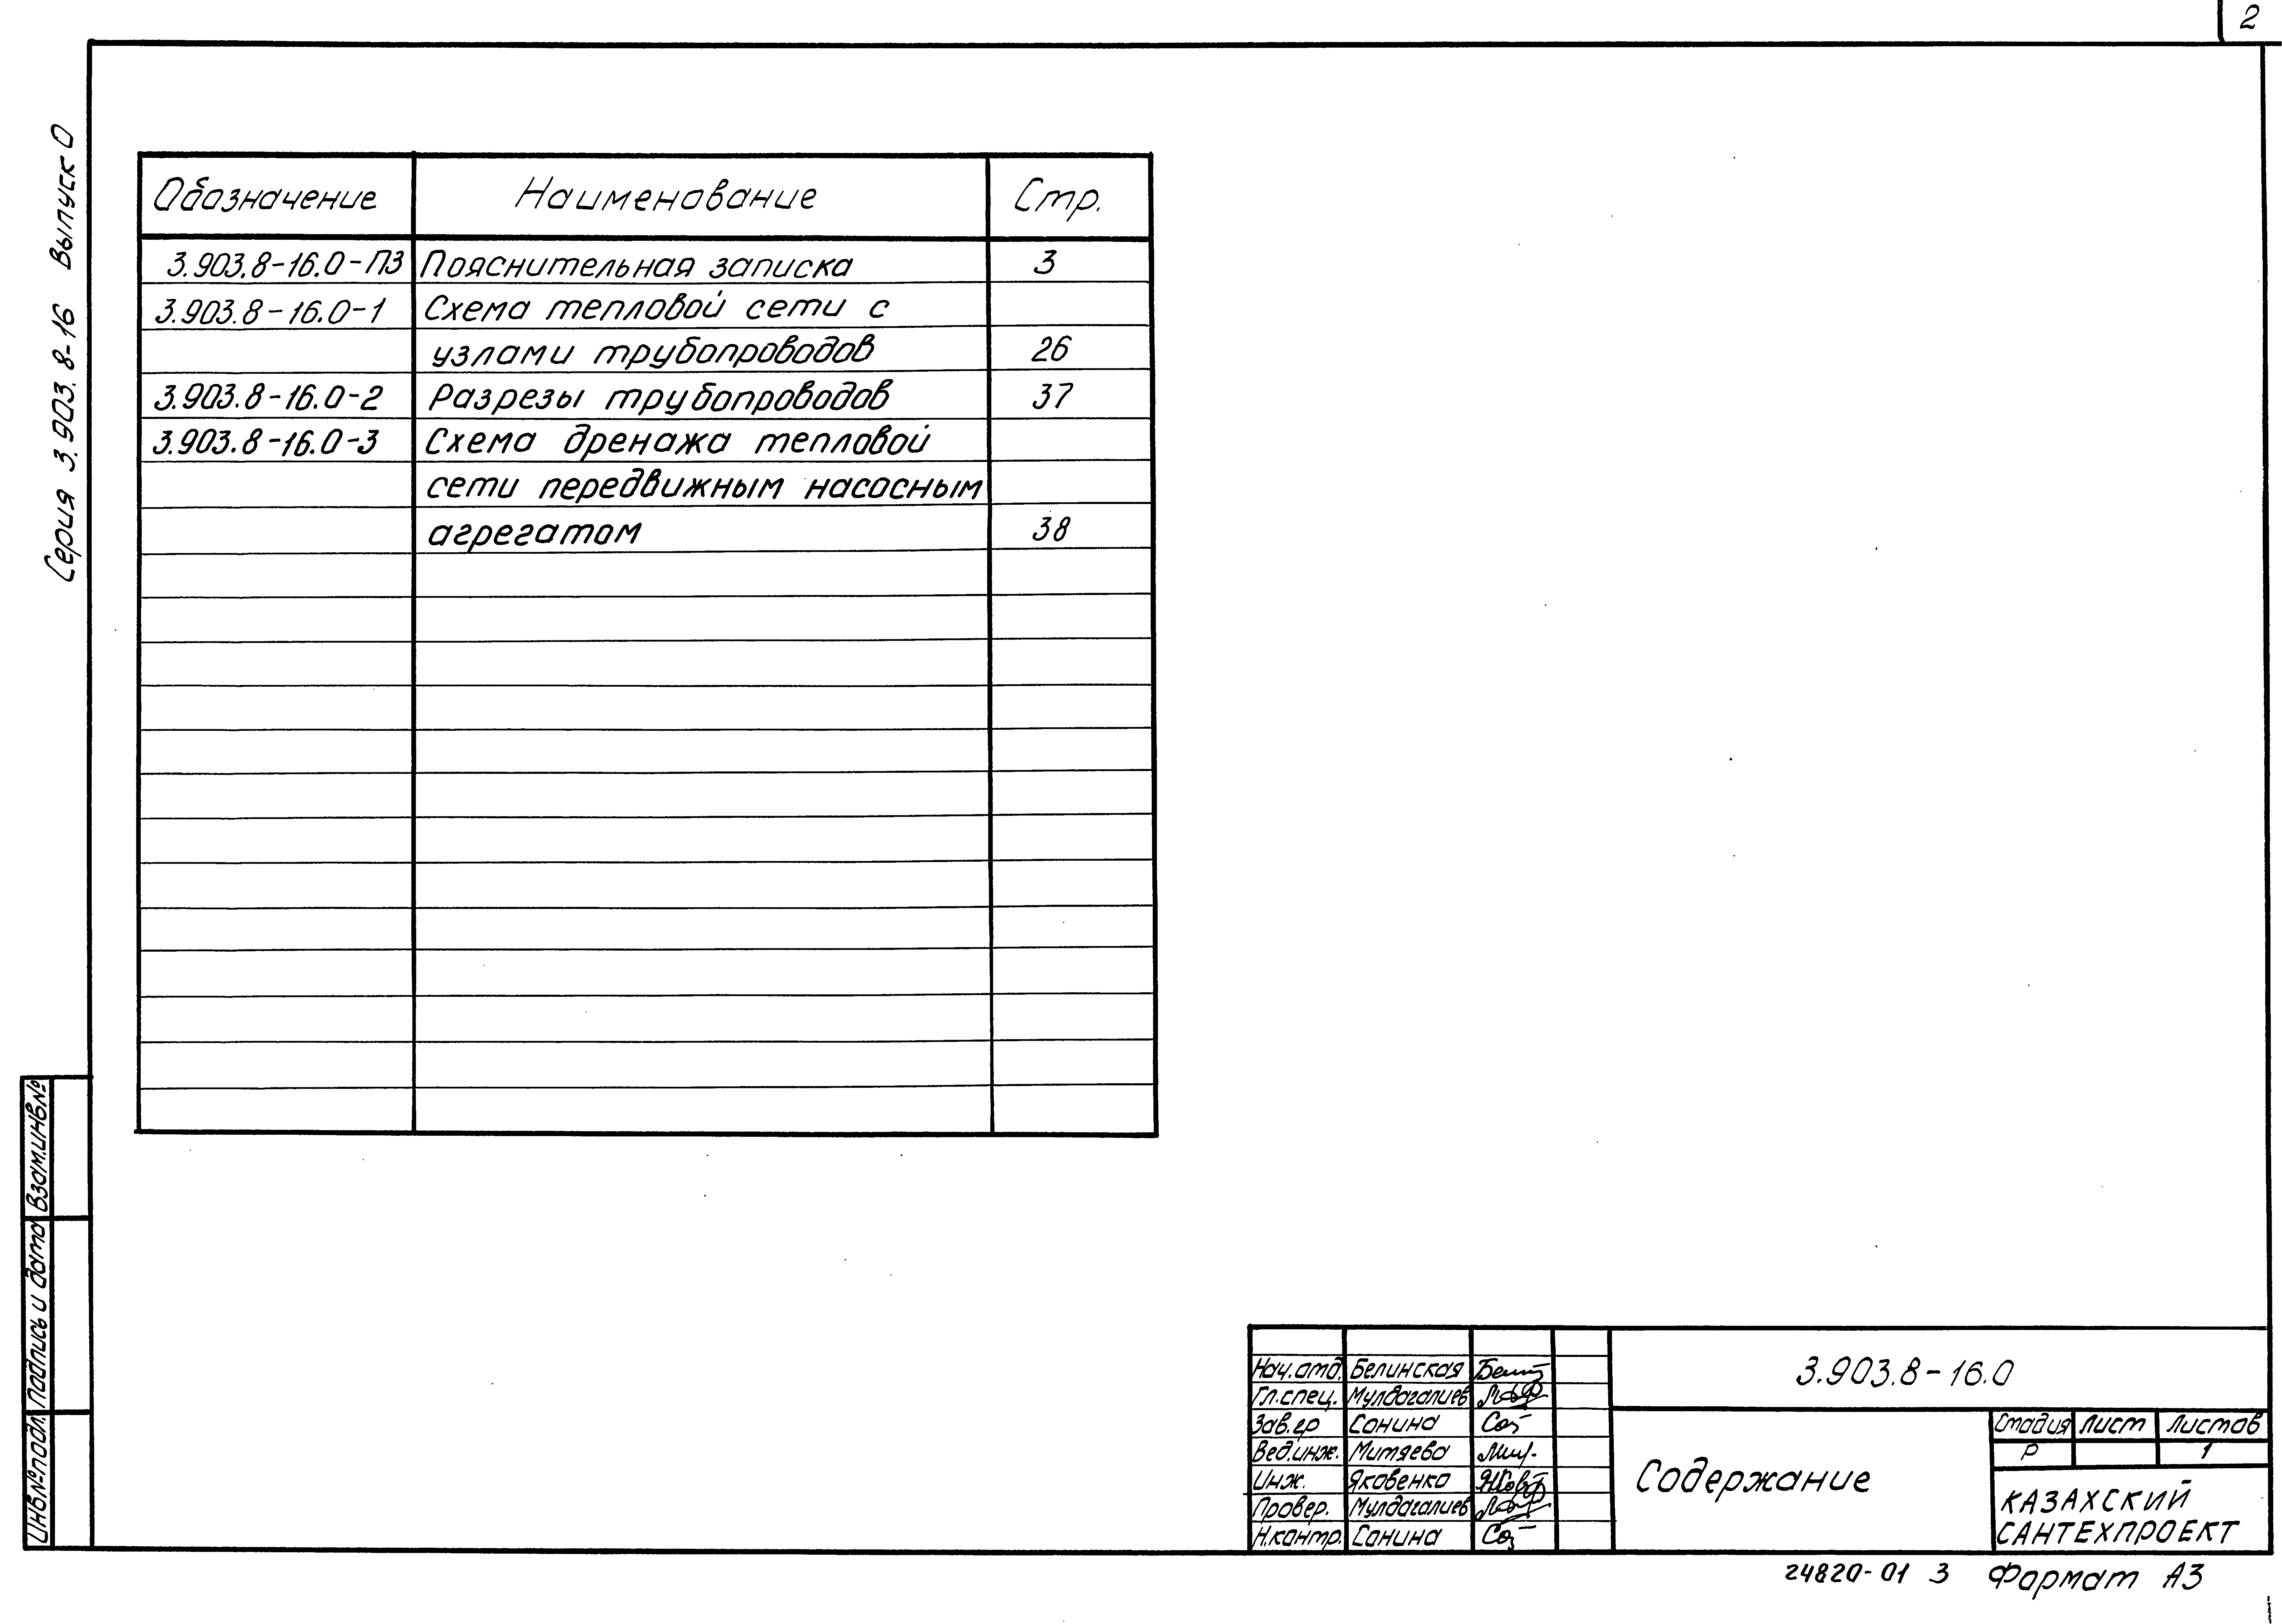 2
Серия 3.903.8-16 Выпуск 0
Обозначение Наименование Стр.
3.903.8-16.0-ПЗ Пояснительная записка 3
3.903.8-16.0-1 Схема тепловой сети с
узлами трубопроводов 26
3.903.8-16.0-2 Разрезы трубопроводов 37
3.903.8-16.0-3 Схема дренажа тепловой
сети передвижным насосным
агрегатом 38
Взам.инв№
Подпись и дата
Инв№подл.
Нач.отд. Белинская
Гл.спец. Мулдагалиев
Зав.гр Санина
Вед.инж. Митяева
Инж. Яковенко
Провер. Мулдагалиев
Н.контр. Санина
3.903.8-16.0
Содержание
Стадия Лист Листов
Р 1
КАЗАХСКИЙ
САНТЕХПРОЕКТ
24820-01 3 Формат А3